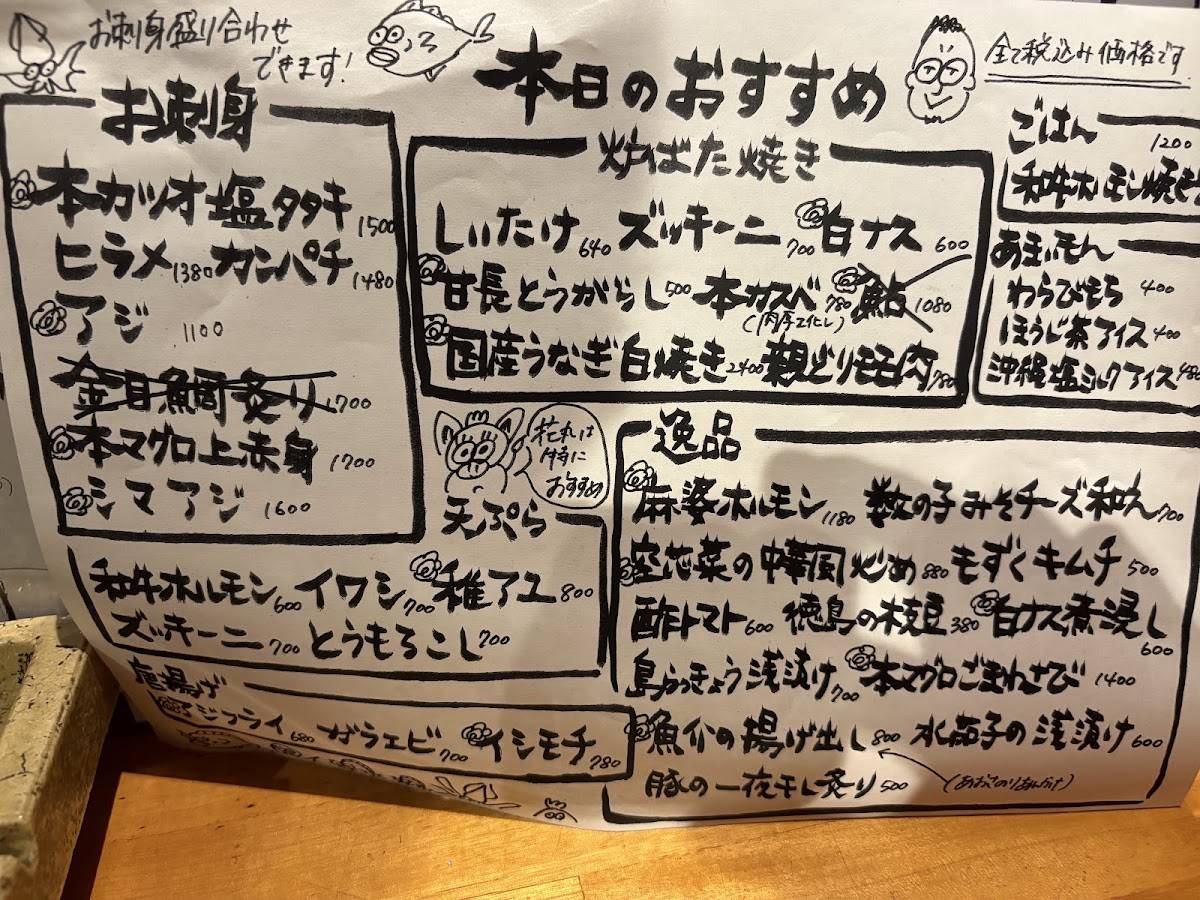 お刺身盛り合わせ
できます!
本日のおすすめ
全て税込み価格です
お刺身
本カツオ塩タタキ 1500
ヒラメ 1380 カンパチ 1480
アジ 1100
金目鯛炙り 1700
本マグロ上赤身 1700
シマアジ 1600
炉ばた焼き
しいたけ 640 ズッキーニ 700 白ナス 600
甘長とうがらし 500 本ガスベ 780 鮎 1080
国産うなぎ白焼き 2400 親どりモモ肉 780
ごはん
1200
和牛ホルモン焼き
あまいもん
わらびもち 400
ほうじ茶アイス 400
沖縄塩ミルクアイス 480
花丸は
特に
おすすめ
天ぷら
和牛ホルモン 600 イワシ 700 稚アユ 800
ズッキーニ 700 とうもろこし 700
唐揚げ
ジフライ 680 ガラエビ 700 イシモチ 780
逸品
麻婆ホルモン 1180 数の子みそチーズ和え 700
空芯菜の中華風炒め 880 もずくキムチ 500
酢トマト 600 徳島の枝豆 380 白ナス煮浸し
600
島らっきょう浅漬け 700 本マグロごまわさび 1400
魚介の揚げ出し 800 水茄子の浅漬け 600
豚の一夜干し炙り 500 (あおさのりあんかけ)